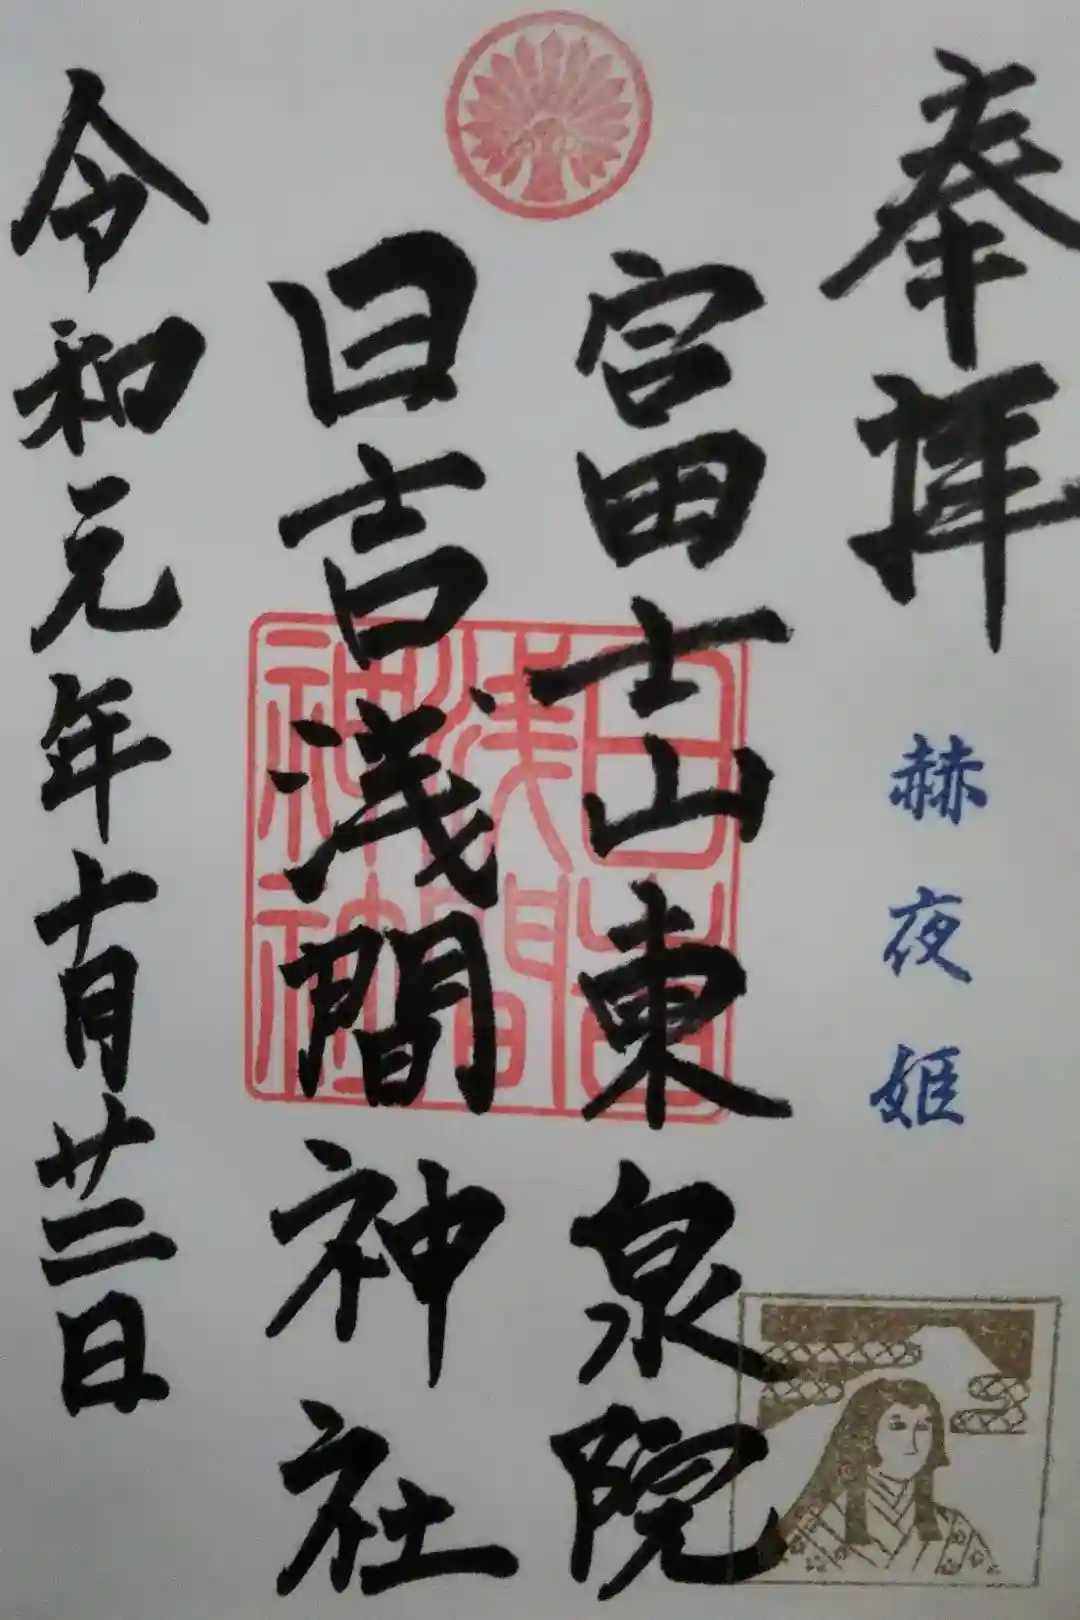 奉拝
赫夜姫
富士山東泉院
日吉浅間神社
令和元年十月廿二日
日吉
浅間
神社